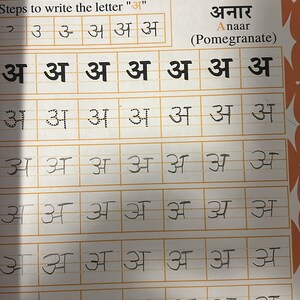 Steps to write the letter "अ"
अनार
Anaar
(Pomegranate)
अ अ अ अ अ अ अ
अ अ अ अ अ अ अ
अ अ अ अ अ अ अ
अ अ अ अ अ अ अ
अ अ अ अ अ अ अ